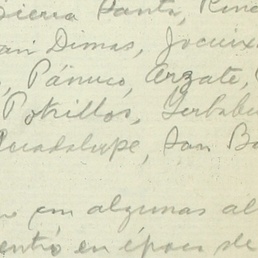 Sierra Santa, Rin
San Dimas, Jocuix
, Pánuco, Arzate,
Potrillos, Yerbabu
Guadalupe, San Ba
en algunas al
entró en época de